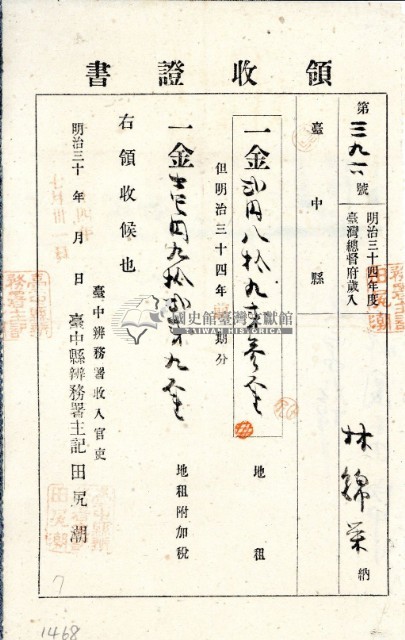 領收證書
第三九六號
明治三十四年度
臺灣總督府歲入
林錦榮 納
臺中縣
一金貳円八拾九錢參厘 地租
但明治三十四年 期分
一金 円九拾 錢九厘 地租附加稅
右領收候也
明治三十 年 月 日
臺中辨務署收入官吏
臺中縣辨務署主記 田尻潮
國史館臺灣文獻館
TAIWAN HISTORICA
7
1468